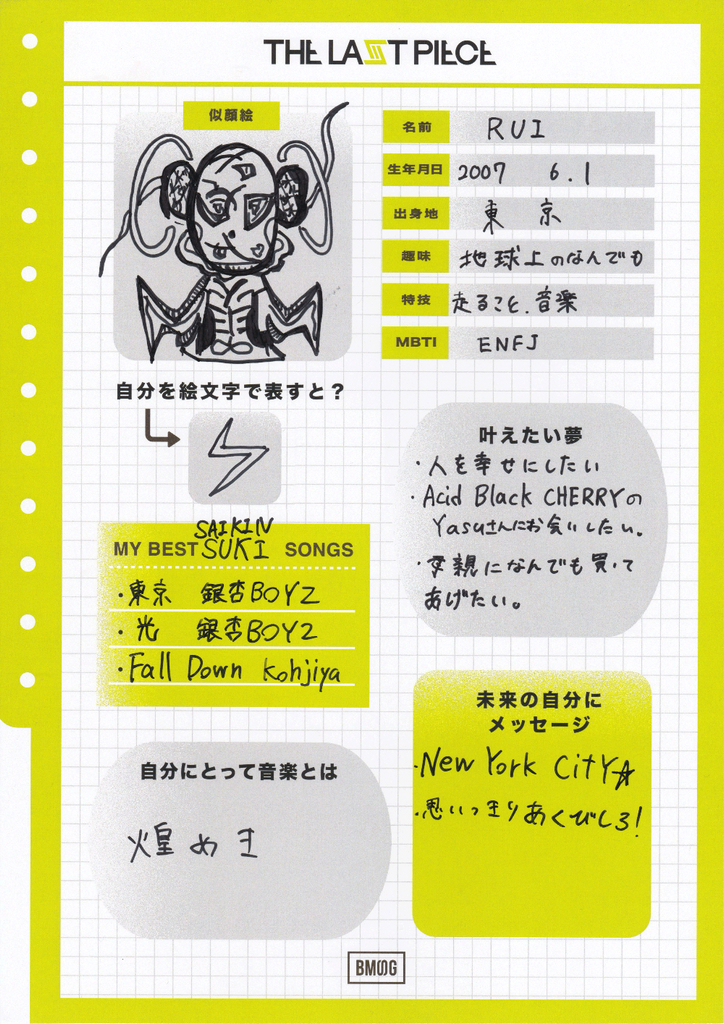 THE LAST PIECE
似顔絵
名前 RUI
生年月日 2007 6.1
出身地 東京
趣味 地球上のなんでも
特技 走ること、音楽
MBTI ENFJ
自分を絵文字で表すと？
叶えたい夢
・人を幸せにしたい
・Acid Black CHERRYの
Yasuさんにお会いしたい。
・母親になんでも買って
あげたい。
SAIKIN
MY BEST SUKI SONGS
・東京 銀杏BOYZ
・光 銀杏BOYZ
・Fall Down Kohjiya
未来の自分に
メッセージ
・New York CitY☆
・思いっきりあくびしろ!
自分にとって音楽とは
煌めき
BMSG